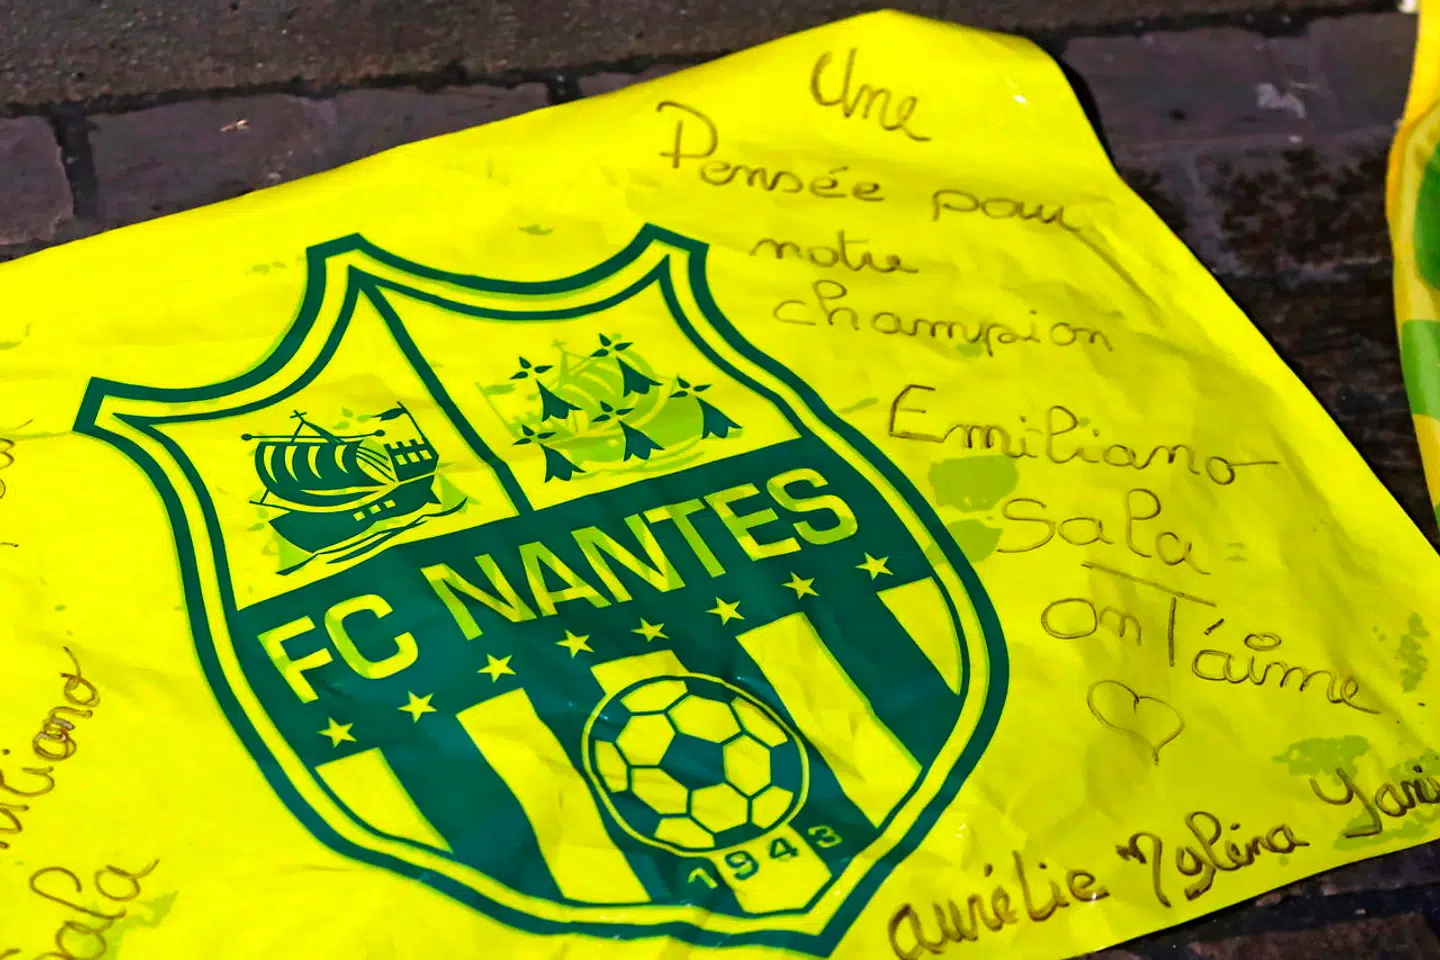 Une
Pensée pour
notre
champion
Emiliano
Sala
on T'aime
FC NANTES
1943
aurélie Mylèna
Emiliano
Sala